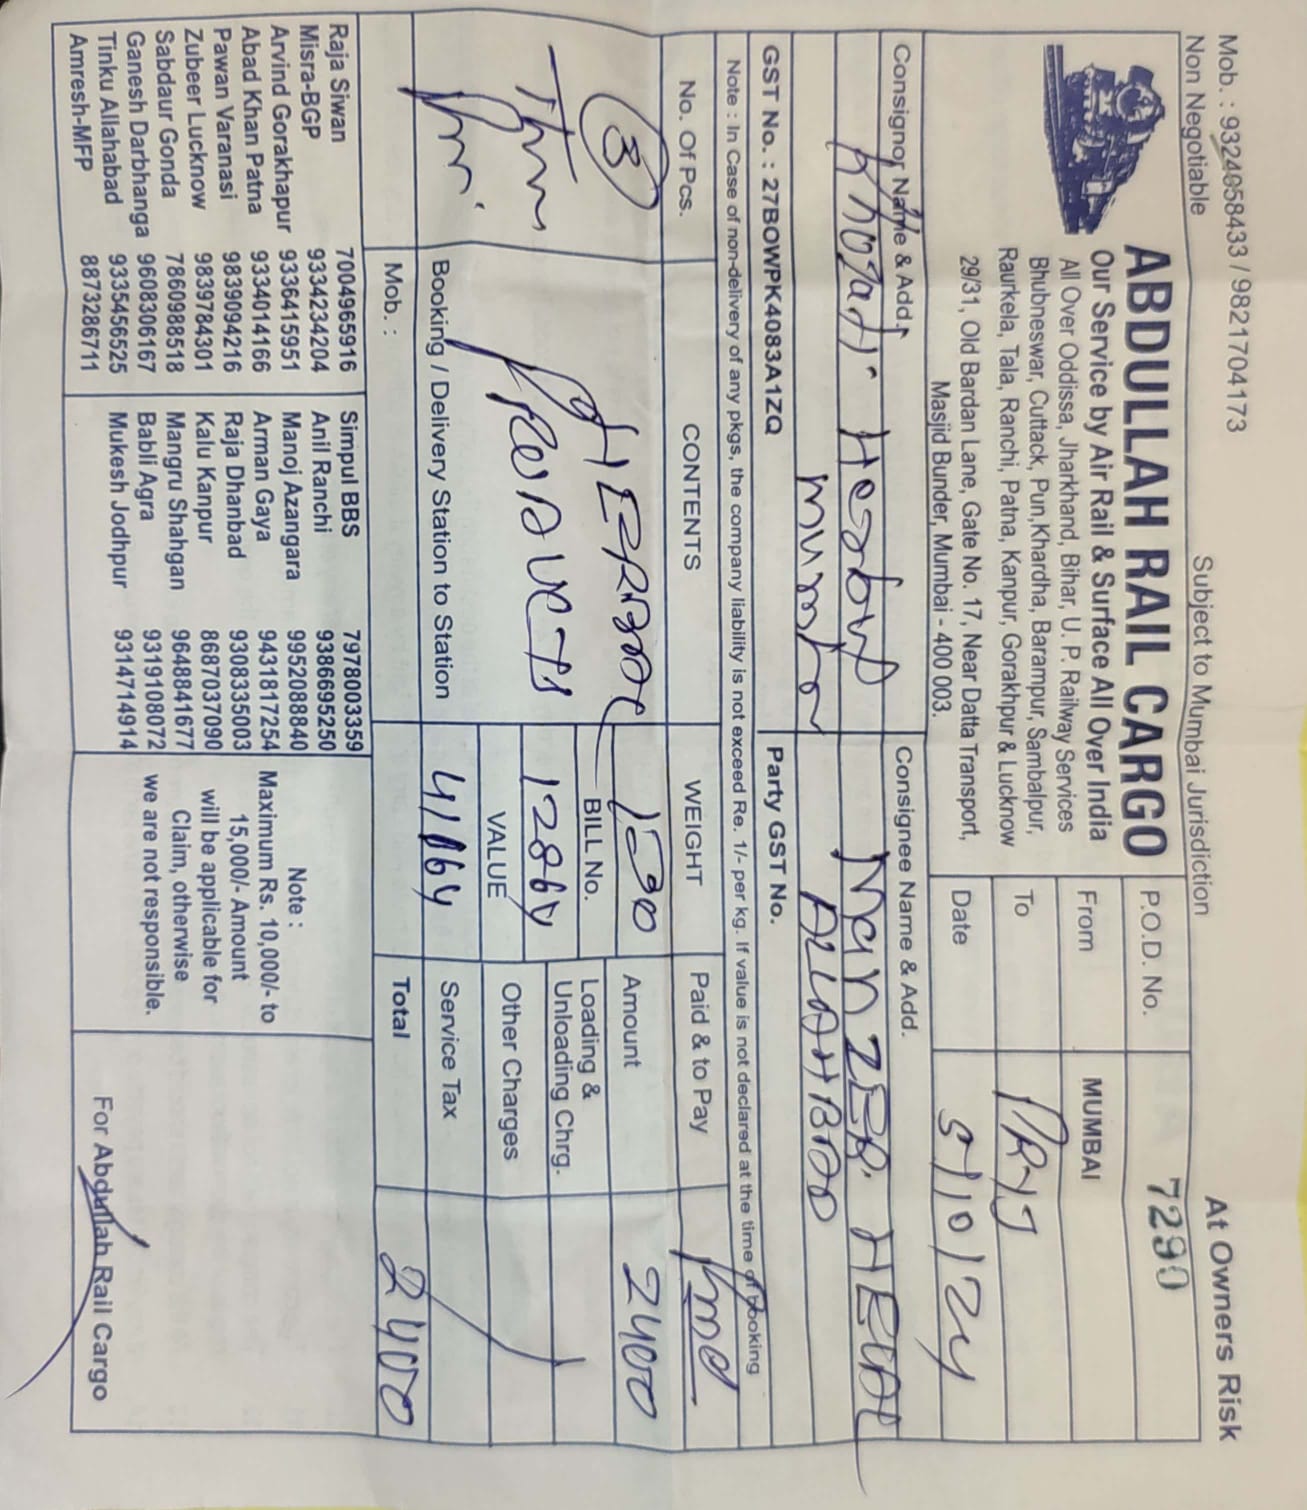 Mob. : 9324058433 / 9821704173
Subject to Mumbai Jurisdiction
At Owners Risk
Non Negotiable
ABDULLAH RAIL CARGO
Our Service by Air Rail & Surface All Over India
All Over Oddissa, Jharkhand, Bihar, U. P. Railway Services
Bhubneswar, Cuttack, Pun,Khardha, Barampur, Sambalpur,
Raurkela, Tala, Ranchi, Patna, Kanpur, Gorakhpur & Lucknow
29/31, Old Bardan Lane, Gate No. 17, Near Datta Transport,
Masjid Bunder, Mumbai - 400 003.
P.O.D. No. 7290
From MUMBAI
To PRYJ
Date 5/10/24
Consignor Name & Add.
Herbal
Consignee Name & Add.
HERBAL
GST No. : 27BOWPK4083A1ZQ
Party GST No.
Note : In Case of non-delivery of any pkgs, the company liability is not exceed Re. 1/- per kg. If value is not declared at the time of booking
No. Of Pcs. CONTENTS WEIGHT Paid & to Pay
3 HERBAL 130 Amount 2400
PRODUCTS
BILL No.
1286
Loading &
Unloading Chrg.
VALUE
Other Charges
Booking / Delivery Station to Station
Service Tax
Mob. :
Total 2400
Raja Siwan 7004965916
Misra-BGP 9334234204
Arvind Gorakhapur 9336415951
Abad Khan Patna 9334014166
Pawan Varanasi 9839094216
Zubeer Lucknow 9839784301
Sabdaur Gonda 7860988518
Ganesh Darbhanga 9608306167
Tinku Allahabad 9335456525
Amresh-MFP 8873286711
Simpul BBS 7978003359
Anil Ranchi 9386695250
Manoj Azangara 9952088840
Arman Gaya 9431817254
Raja Dhanbad 9308335003
Kalu Kanpur 8687037090
Mangru Shahgan 9648841677
Babli Agra 9319108072
Mukesh Jodhpur 9314714914
Note :
Maximum Rs. 10,000/- to
15,000/- Amount
will be applicable for
Claim, otherwise
we are not responsible.
For Abdullah Rail Cargo